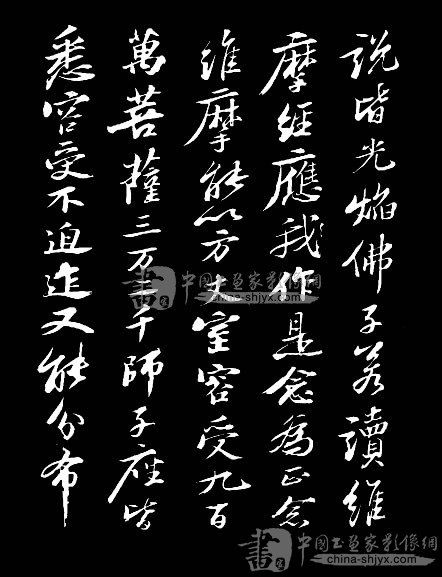 說皆光焰佛子若讀維
摩經應我作是念為正念
維摩能以方丈室容受九百
萬菩薩三万二千師子座皆
悉容受不迫迮又能分布
書 中国书画家影像網
china-shjyx.com
書 中国书画家影像網
china-shjyx.com